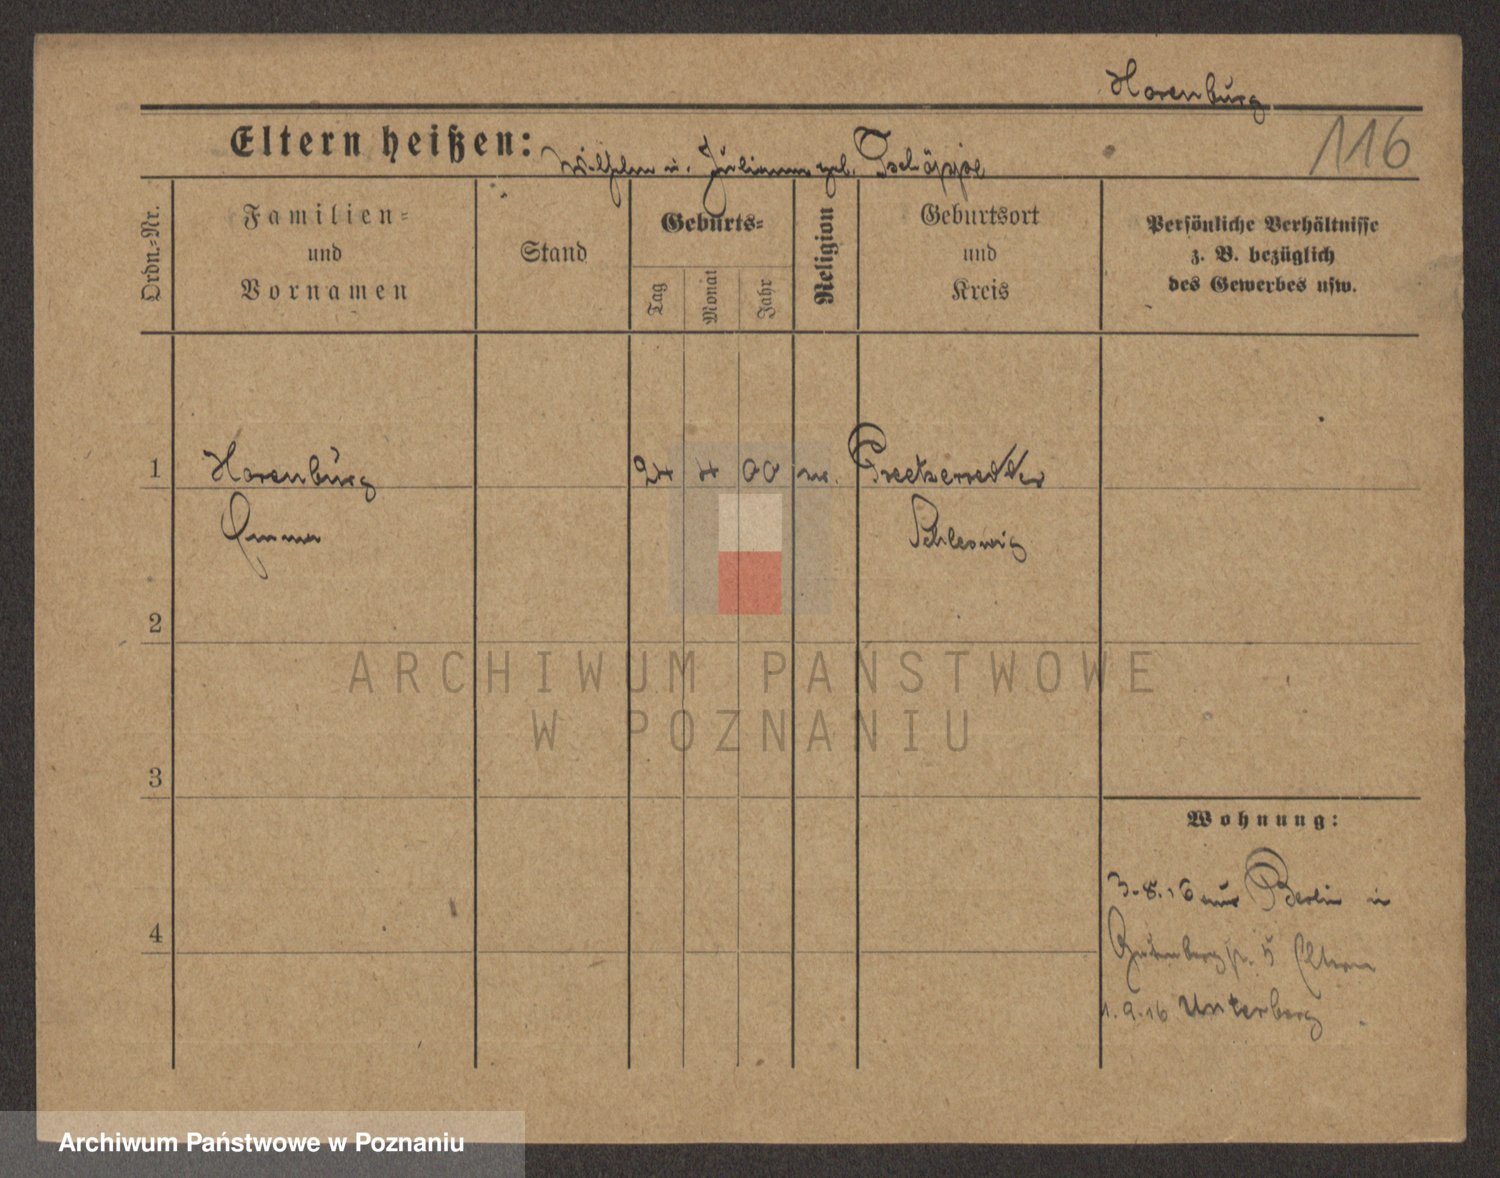 Horenburg
116
Eltern heißen: Wilhelm u. Julianne geb. Tschöppe
Ordn.-Nr.
Familien-
und
Vornamen
Stand
Geburts-
Tag
Monat
Jahr
Religion
Geburtsort
und
Kreis
Persönliche Verhältnisse
z. B. bezüglich
des Gewerbes usw.
1 Horenburg 24 4 00
Emma Schleswig
2
3
4
ARCHIWUM PAŃSTWOWE
W POZNANIU
Wohnung:
3.8.16 aus Berlin in
5 Eltern
1.9.16 Unterberg
Archiwum Państwowe w Poznaniu